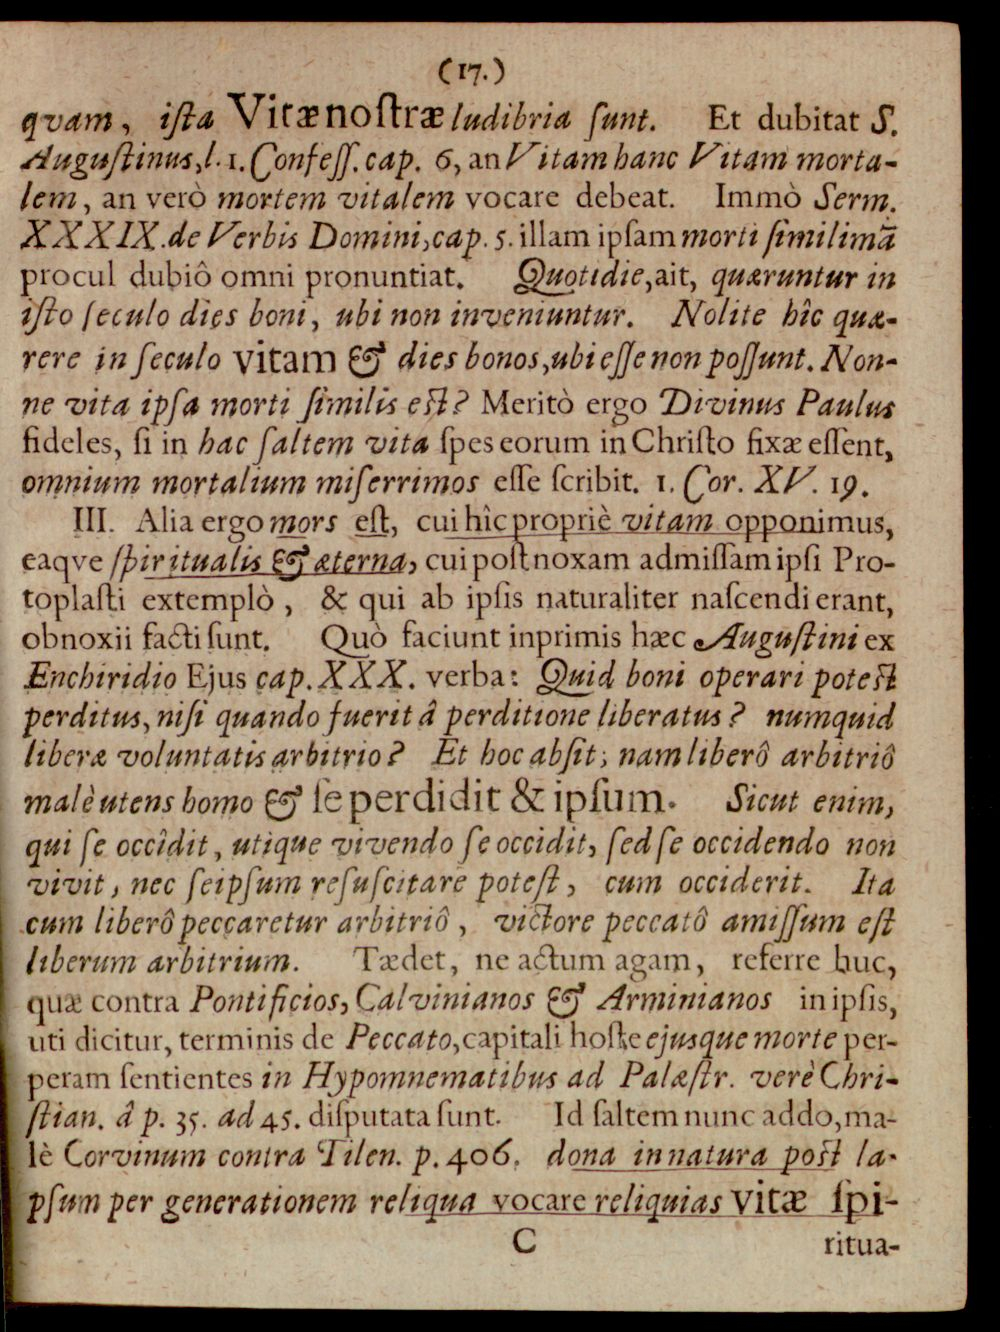 (17.)
qvam, iſta Vitæ noſtræ ludibria ſunt. Et dubitat S.
Auguſtinus, l. 1. Confeſſ. cap. 6, an Vitam hanc Vitam morta-
lem, an verò mortem vitalem vocare debeat. Immò Serm.
XXXIX. de Verbis Domini, cap. 5. illam ipſam morti ſimilimã
procul dubiô omni pronuntiat. Quotidie, ait, quæruntur in
iſto ſeculo dies boni, ubi non inveniuntur. Nolite hîc quæ-
rere in ſeculo vitam & dies bonos, ubi eſſe non poſſunt. Non-
ne vita ipſa morti ſimilis eſt? Meritò ergo Divinus Paulus
fideles, ſi in hac ſaltem vita ſpes eorum in Chriſto fixæ eſſent,
omnium mortalium miſerrimos eſſe ſcribit. 1. Cor. XV. 19.
III. Alia ergo mors eſt, cui hîc propriè vitam opponimus,
eaqve ſpiritualis & æterna, cui poſt noxam admiſſam ipſi Pro-
toplaſti extemplò, & qui ab ipſis naturaliter naſcendi erant,
obnoxii facti ſunt. Quò faciunt inprimis hæc Auguſtini ex
Enchiridio Ejus cap. XXX. verba: Quid boni operari poteſt
perditus, niſi quando fuerit â perditione liberatus? numquid
liberæ voluntatis arbitrio? Et hoc abſit; nam liberô arbitriô
malè utens homo & ſe perdidit & ipſum. Sicut enim,
qui ſe occîdit, utique vivendo ſe occidit, ſed ſe occidendo non
vivit, nec ſeipſum reſuſcitare poteſt, cum occiderit. Ita
cum liberô peccaretur arbitriô, victore peccatô amiſſum eſt
liberum arbitrium. Tædet, ne actum agam, referre huc,
quæ contra Pontificios, Calvinianos & Arminianos in ipſis,
uti dicitur, terminis de Peccato, capitali hoſte ejusque morte per-
peram ſentientes in Hypomnematibus ad Palæſtr. verè Chri-
ſtian. â p. 35. ad 45. diſputata ſunt. Id ſaltem nunc addo, ma-
lè Corvinum contra Tilen. p. 406. dona in natura poſt la-
pſum per generationem reliqua vocare reliquias vitæ ſpi-
C ritua-